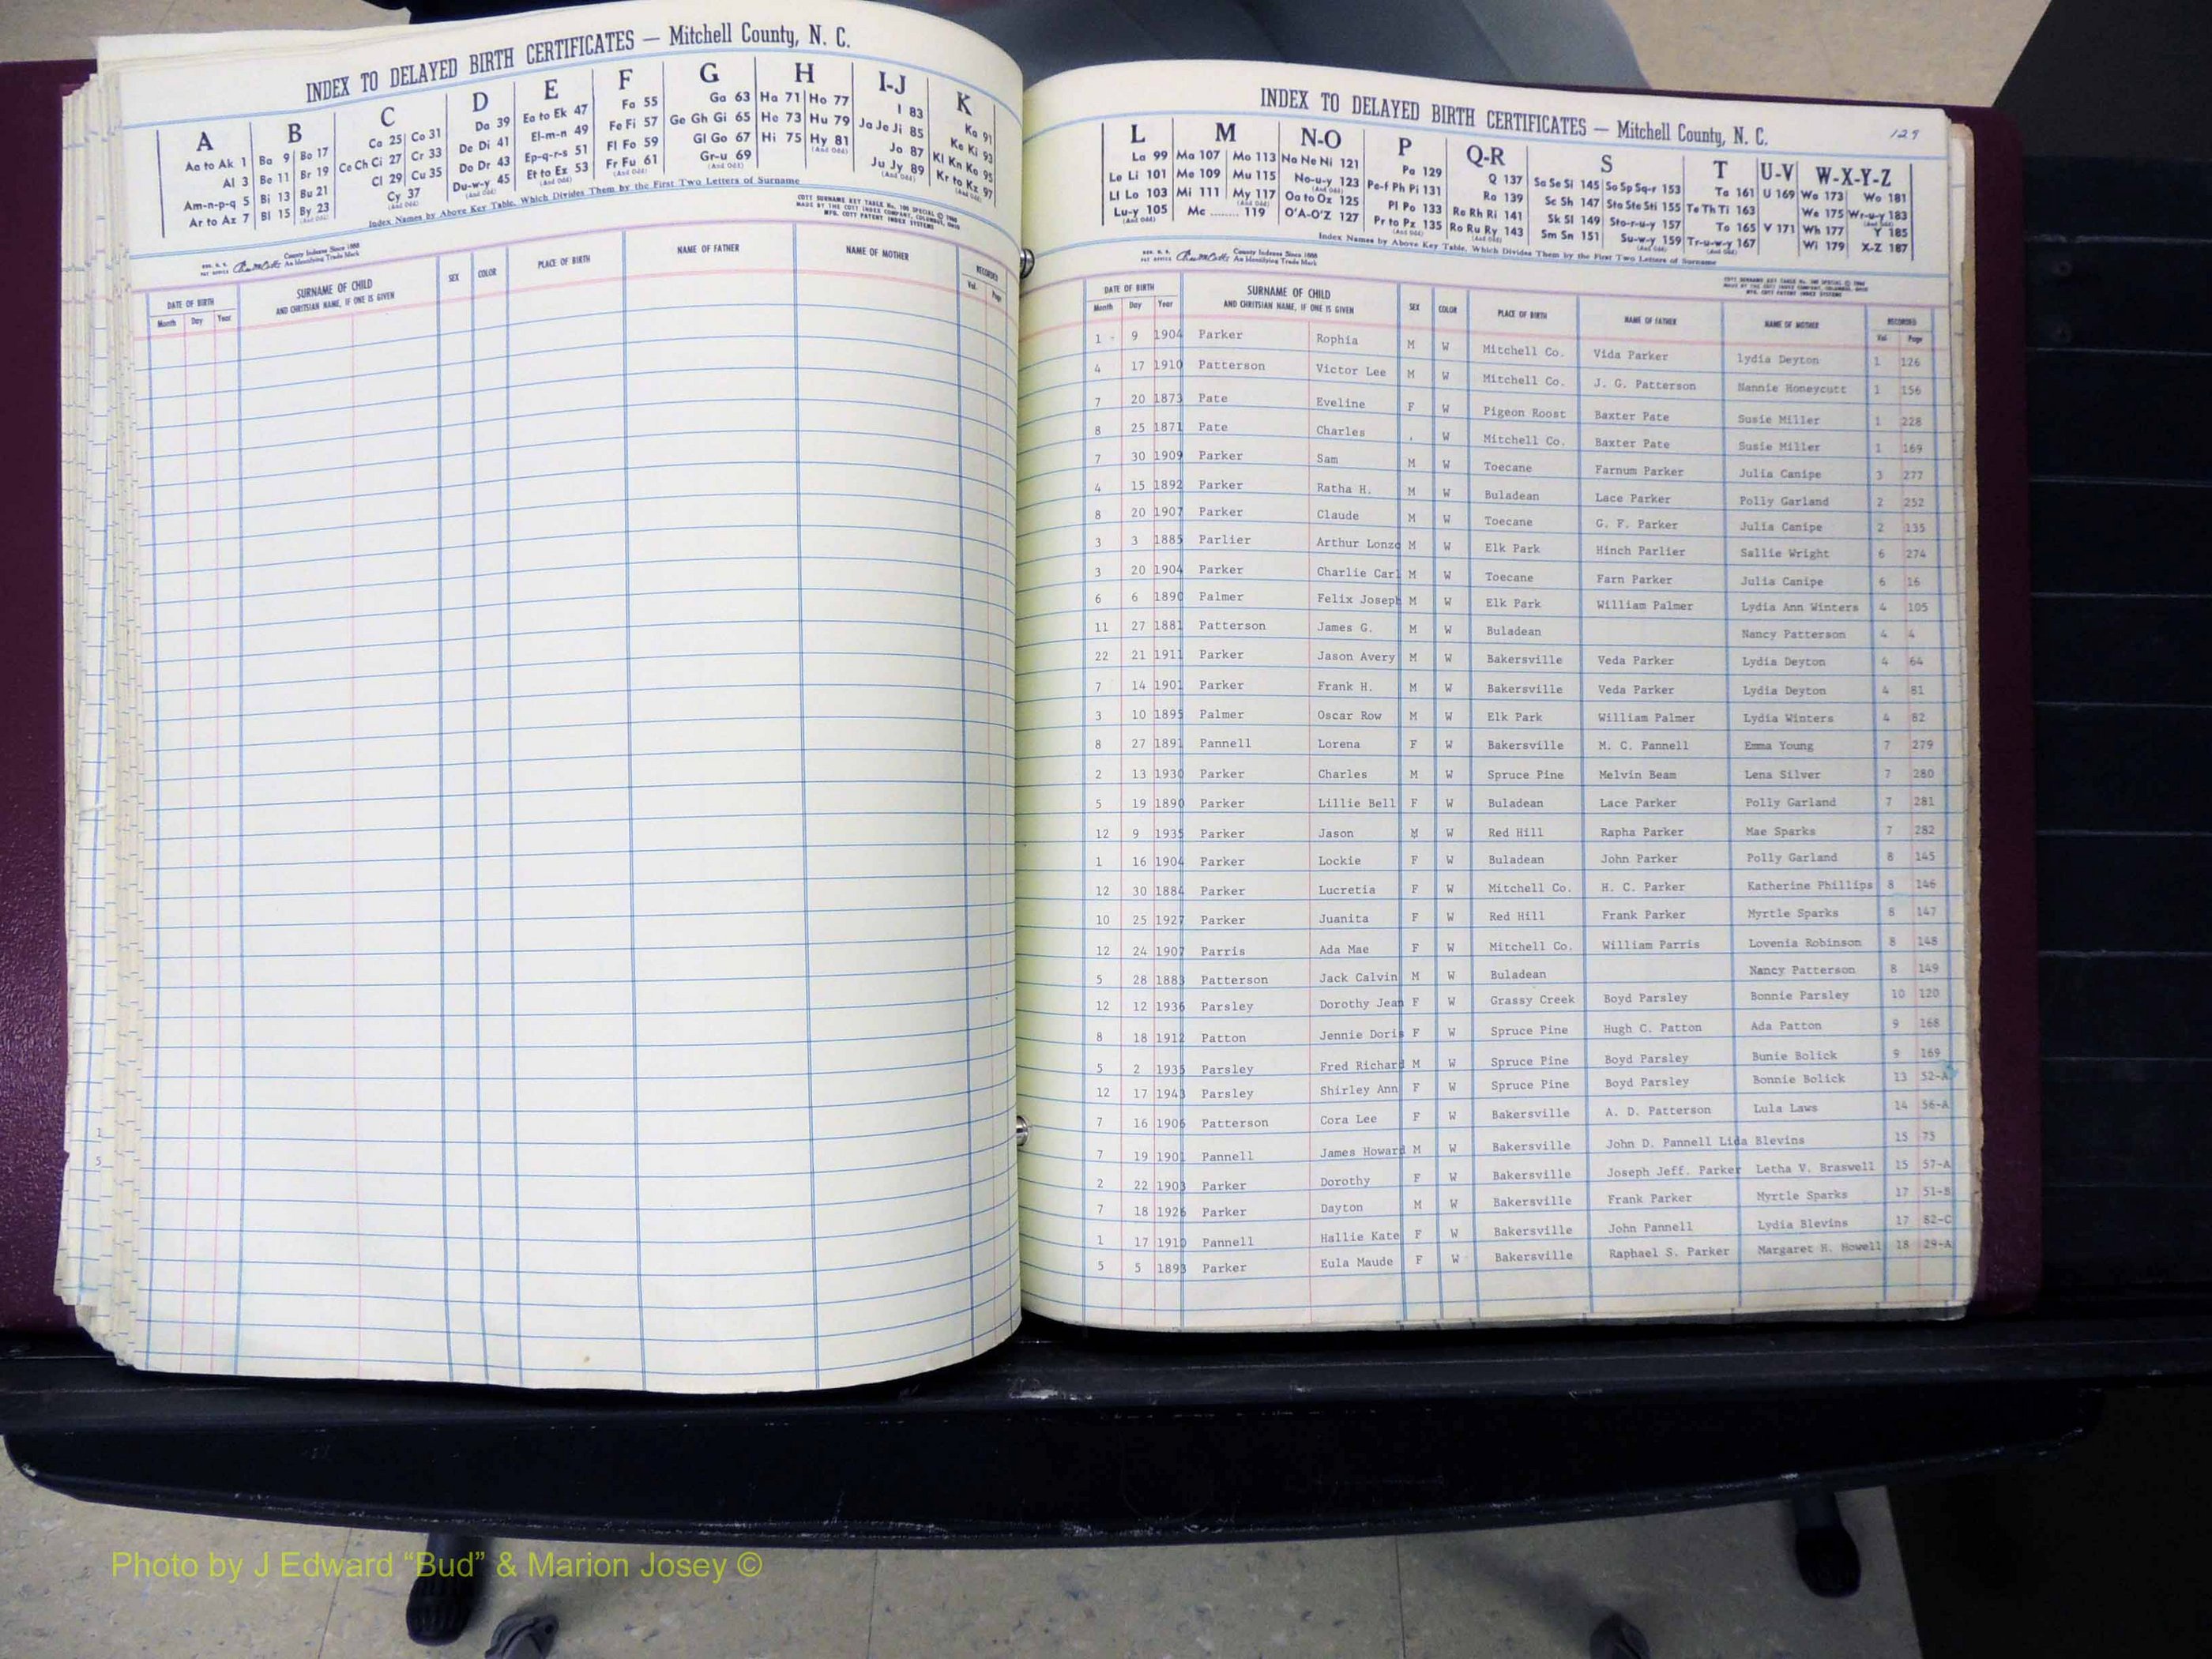 INDEX TO DELAYED BIRTH CERTIFICATES — Mitchell County, N. C.
A B C D E F G H I-J K
Aa to Ak 1 Ba 9 Bo 17 Ca 25 Co 31 Da 39 Ea to Ek 47 Fa 55 Ga 63 Ha 71 Ho 77 I 83 Ka 91
Al 3 Be 11 Br 19 Ce Ch Ci 27 Cr 33 De Di 41 El-m-n 49 Fe Fi 57 Ge Gh Gi 65 He 73 Hu 79 Ja Je Ji 85 Ke Ki 93
Am-n-p-q 5 Bi 13 Bu 21 Cl 29 Cu 35 Do Dr 43 Ep-q-r-s 51 Fl Fo 59 Gl Go 67 Hi 75 Hy 81 Jo 87 Kl Kn Ko 95
Ar to Az 7 Bl 15 By 23 Cy 37 Du-w-y 45 Et to Ez 53 Fr Fu 61 Gr-u 69 Ju Jy 89 Kr to Kz 97
Index Names by Above Key Table, Which Divides Them by the First Two Letters of Surname
COTT SURNAME KEY TABLE No. 100 SPECIAL © 1960
MADE BY THE COTT INDEX COMPANY, COLUMBUS, OHIO
MFG. COTT PATENT INDEX SYSTEMS
County Indexes Since 1888
An Identifying Trade Mark
DATE OF BIRTH SURNAME OF CHILD SEX COLOR PLACE OF BIRTH NAME OF FATHER NAME OF MOTHER RECORDED
Month Day Year AND CHRITSIAN NAME, IF ONE IS GIVEN Vol. Page
1
5
INDEX TO DELAYED BIRTH CERTIFICATES — Mitchell County, N. C. 129
L M N-O P Q-R S T U-V W-X-Y-Z
La 99 Ma 107 Mo 113 Na Ne Ni 121 Pa 129 Q 137 Sa Se Si 145 So Sp Sq-r 153 Ta 161 U 169 Wa 173 Wo 181
Le Li 101 Me 109 Mu 115 No-u-y 123 Pe-f Ph Pi 131 Ra 139 Sc Sh 147 Sta Ste Sti 155 Te Th Ti 163 We 175 Wr-u-y 183
Ll Lo 103 Mi 111 My 117 Oa to Oz 125 Pl Po 133 Re Rh Ri 141 Sk Sl 149 Sto-r-u-y 157 To 165 V 171 Wh 177 Y 185
Lu-y 105 Mc ........ 119 O'A-O'Z 127 Pr to Pz 135 Ro Ru Ry 143 Sm Sn 151 Su-w-y 159 Tr-u-w-y 167 Wi 179 X-Z 187
Index Names by Above Key Table, Which Divides Them by the First Two Letters of Surname
County Indexes Since 1888
An Identifying Trade Mark
COTT SURNAME KEY TABLE No. 100 SPECIAL © 1960
MADE BY THE COTT INDEX COMPANY, COLUMBUS, OHIO
MFG. COTT PATENT INDEX SYSTEMS
DATE OF BIRTH SURNAME OF CHILD SEX COLOR PLACE OF BIRTH NAME OF FATHER NAME OF MOTHER RECORDED
Month Day Year AND CHRITSIAN NAME, IF ONE IS GIVEN Vol. Page
1 9 1904 Parker Rophia M W Mitchell Co. Vida Parker lydia Deyton 1 126
4 17 1910 Patterson Victor Lee M W Mitchell Co. J. G. Patterson Nannie Honeycutt 1 156
7 20 1873 Pate Eveline F W Pigeon Roost Baxter Pate Susie Miller 1 228
8 25 1871 Pate Charles . W Mitchell Co. Baxter Pate Susie Miller 1 169
7 30 1909 Parker Sam M W Toecane Farnum Parker Julia Canipe 3 277
4 15 1892 Parker Ratha H. M W Buladean Lace Parker Polly Garland 2 252
8 20 1907 Parker Claude M W Toecane G. F. Parker Julia Canipe 2 135
3 3 1885 Parlier Arthur Lonzo M W Elk Park Hinch Parlier Sallie Wright 6 274
3 20 1904 Parker Charlie Carl M W Toecane Farn Parker Julia Canipe 6 16
6 6 1890 Palmer Felix Joseph M W Elk Park William Palmer Lydia Ann Winters 4 105
11 27 1881 Patterson James G. M W Buladean Nancy Patterson 4 4
22 21 1911 Parker Jason Avery M W Bakersville Veda Parker Lydia Deyton 4 64
7 14 1901 Parker Frank H. M W Bakersville Veda Parker Lydia Deyton 4 81
3 10 1895 Palmer Oscar Row M W Elk Park William Palmer Lydia Winters 4 82
8 27 1891 Pannell Lorena F W Bakersville M. C. Pannell Emma Young 7 279
2 13 1930 Parker Charles M W Spruce Pine Melvin Beam Lena Silver 7 280
5 19 1890 Parker Lillie Bell F W Buladean Lace Parker Polly Garland 7 281
12 9 1935 Parker Jason M W Red Hill Rapha Parker Mae Sparks 7 282
1 16 1904 Parker Lockie F W Buladean John Parker Polly Garland 8 145
12 30 1884 Parker Lucretia F W Mitchell Co. H. C. Parker Katherine Phillips 8 146
10 25 1927 Parker Juanita F W Red Hill Frank Parker Myrtle Sparks 8 147
12 24 1907 Parris Ada Mae F W Mitchell Co. William Parris Lovenia Robinson 8 148
5 28 1883 Patterson Jack Calvin M W Buladean Nancy Patterson 8 149
12 12 1936 Parsley Dorothy Jean F W Grassy Creek Boyd Parsley Bonnie Parsley 10 120
8 18 1912 Patton Jennie Doris F W Spruce Pine Hugh C. Patton Ada Patton 9 168
5 2 1935 Parsley Fred Richard M W Spruce Pine Boyd Parsley Bunie Bolick 9 169
12 17 1943 Parsley Shirley Ann F W Spruce Pine Boyd Parsley Bonnie Bolick 13 52-A
7 16 1906 Patterson Cora Lee F W Bakersville A. D. Patterson Lula Laws 14 56-A
7 19 1901 Pannell James Howard M W Bakersville John D. Pannell Lida Blevins 15 75
2 22 1903 Parker Dorothy F W Bakersville Joseph Jeff. Parker Letha V. Braswell 15 57-A
7 18 1926 Parker Dayton M W Bakersville Frank Parker Myrtle Sparks 17 51-B
1 17 1910 Pannell Hallie Kate F W Bakersville John Pannell Lydia Blevins 17 82-C
5 5 1893 Parker Eula Maude F W Bakersville Raphael S. Parker Margaret H. Howell 18 29-A
Photo by J Edward “Bud” & Marion Josey ©